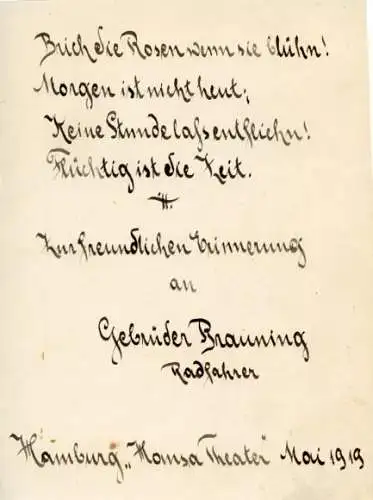 Brich die Rosen wenn sie blühn!
Morgen ist nicht heut;
Keine Stunde lass entfliehn!
Flüchtig ist die Zeit.
Zur freundlichen Erinnerung
an
Gebrüder Brauning
Radfahrer
Hamburg „Hansa Theater" Mai 1919